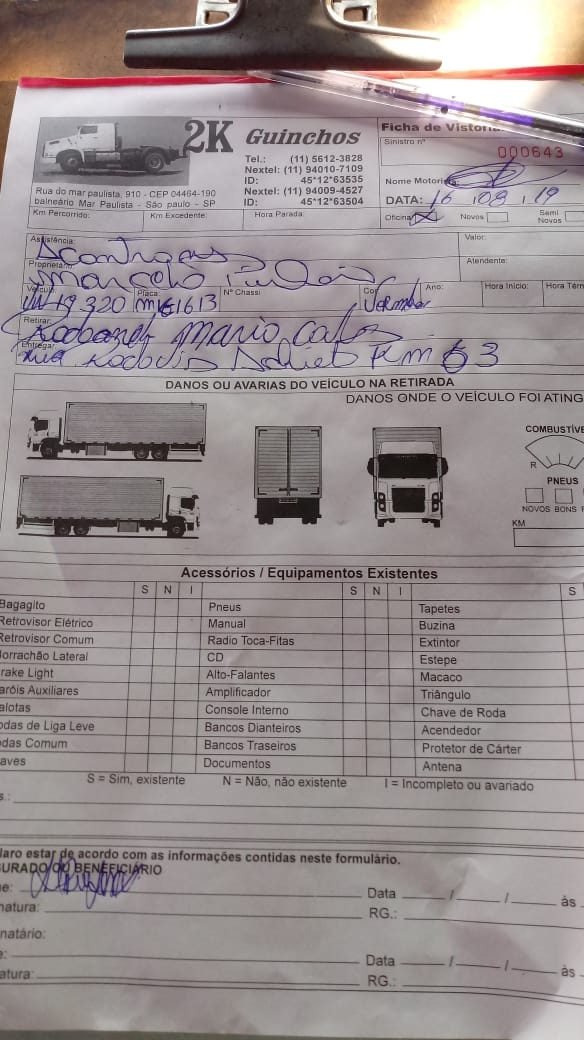 2K Guinchos
Tel.: (11) 5612-3828
Nextel: (11) 94010-7109
ID: 45*12*63535
Nextel: (11) 94009-4527
ID: 45*12*63504
Rua do mar paulista, 910 - CEP 04464-190
balneário Mar Paulista - São paulo - SP
Ficha de Vistoria
Sinistro nº
000643
Nome Motorista
DATA: 16 / 08 / 19
Oficina Novos Semi Novos
Km Percorrido: Km Excedente: Hora Parada:
Assistência: Valor:
Proprietário: Atendente:
Veículo Placa: Nº Chassi Cor Ano: Hora Início: Hora Térm
19 320 1613
Retirar:
Mario
Entregar:
Rodovia Km 63
DANOS OU AVARIAS DO VEÍCULO NA RETIRADA
DANOS ONDE O VEÍCULO FOI ATING
COMBUSTÍVE
R
PNEUS
NOVOS BONS
KM
Acessórios / Equipamentos Existentes
S N I S N I S
Bagagito Pneus Tapetes
Retrovisor Elétrico Manual Buzina
Retrovisor Comum Radio Toca-Fitas Extintor
Borrachão Lateral CD Estepe
rake Light Alto-Falantes Macaco
aróis Auxiliares Amplificador Triângulo
alotas Console Interno Chave de Roda
odas de Liga Leve Bancos Dianteiros Acendedor
odas Comum Bancos Traseiros Protetor de Cárter
aves Documentos Antena
S = Sim, existente N = Não, não existente I = Incompleto ou avariado
s.:
laro estar de acordo com as informações contidas neste formulário.
URADO OU BENEFICIÁRIO
e: Data / / às
natura: RG.:
natário:
e: Data / / às
atura: RG.: